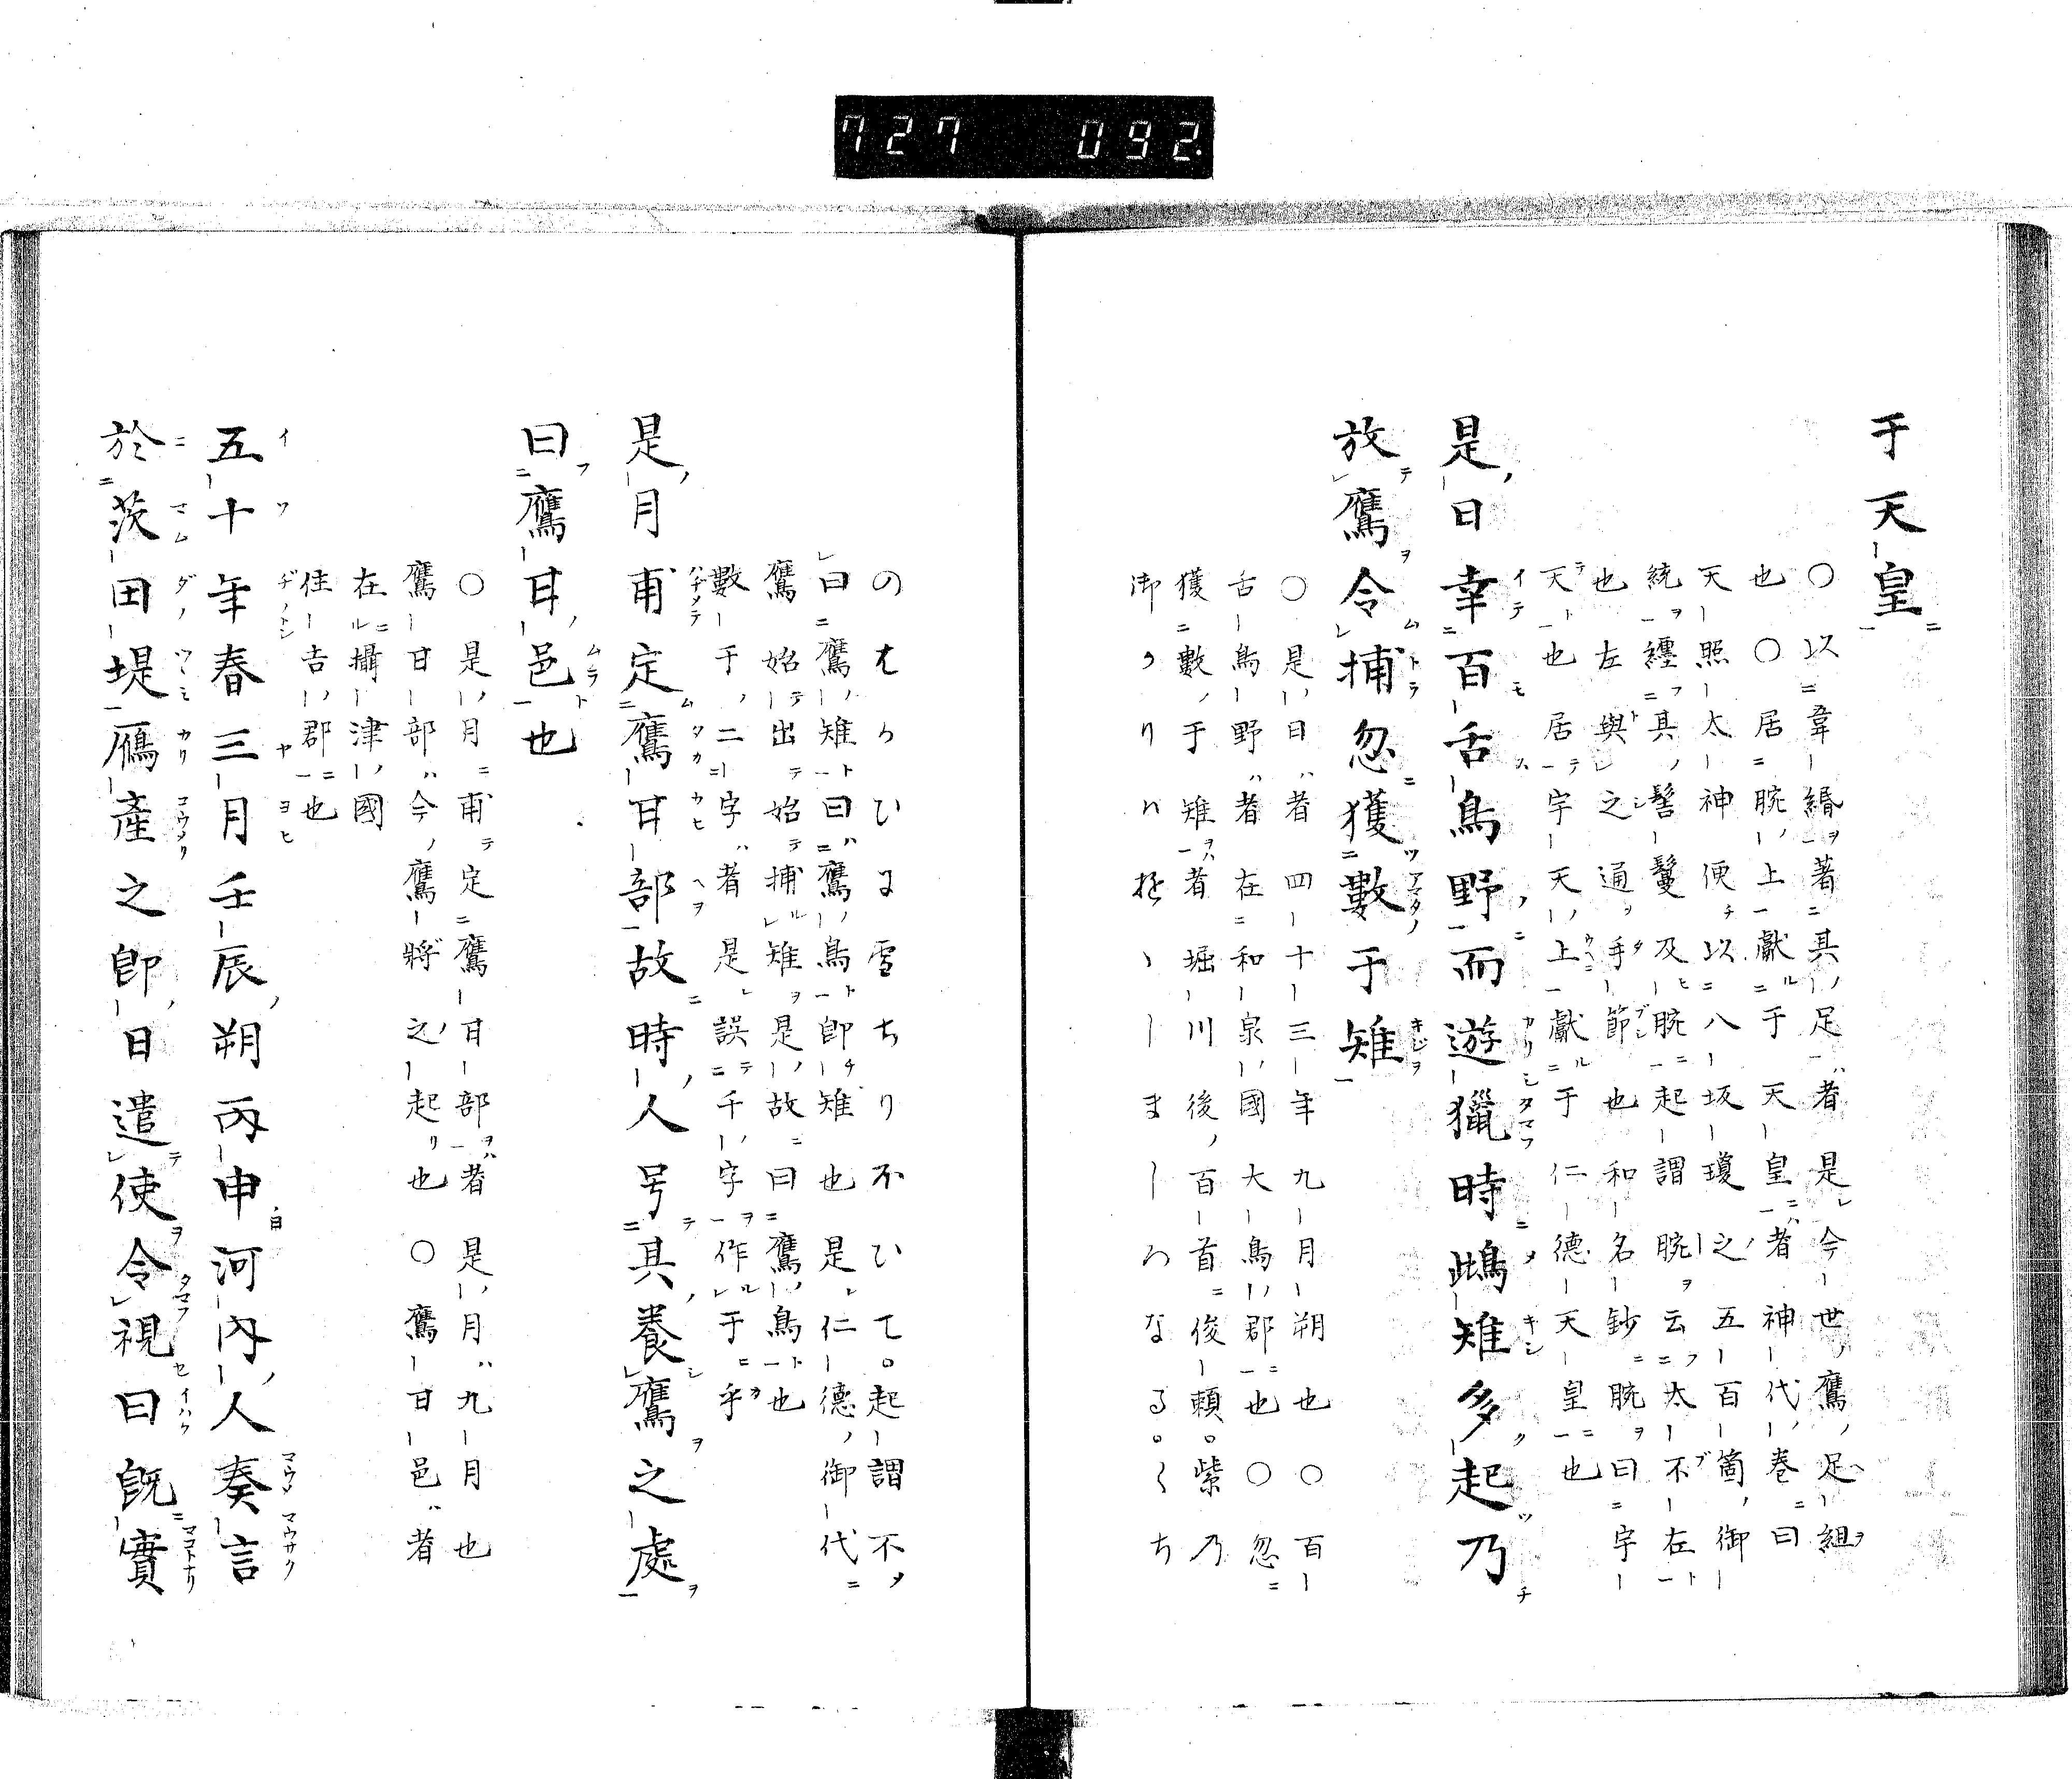 727 092
于天皇
○以韋緡著其足者是今世鷹足組
也○居腕上獻于天皇者神代卷曰
天照太神便以八坂瓊之五百箇御
統纏其髻鬘及腕起謂腕云太不在
也左與之通手節也和名鈔腕曰宇
天也居宇天上獻于仁德天皇也
是日幸百舌鳥野而遊獵時鴟雉多起乃
放鷹令捕忽獲數于雉
○是日者四十三年九月朔也○百
舌鳥野者在和泉國大鳥郡也○忽
獲數于雉者堀川後百首俊頼。紫乃
御かりハ
のをかひま雪ちり不ひて。起謂不
曰鷹雉曰鷹鳥卽雉也是仁德御代
鷹始出始捕雉是故曰鷹鳥也
數于二字者是誤千字作于乎
是月甫定鷹甘部故時人号其養鷹之處
曰鷹甘邑也
○是月甫定鷹甘部者是月九月也
鷹甘部今鷹將之起也○鷹甘邑者
在攝津國
住吉郡也
五十年春三月壬辰朔丙申河內人奏言
於茨田堤鴈產之卽日遣使令視曰既實